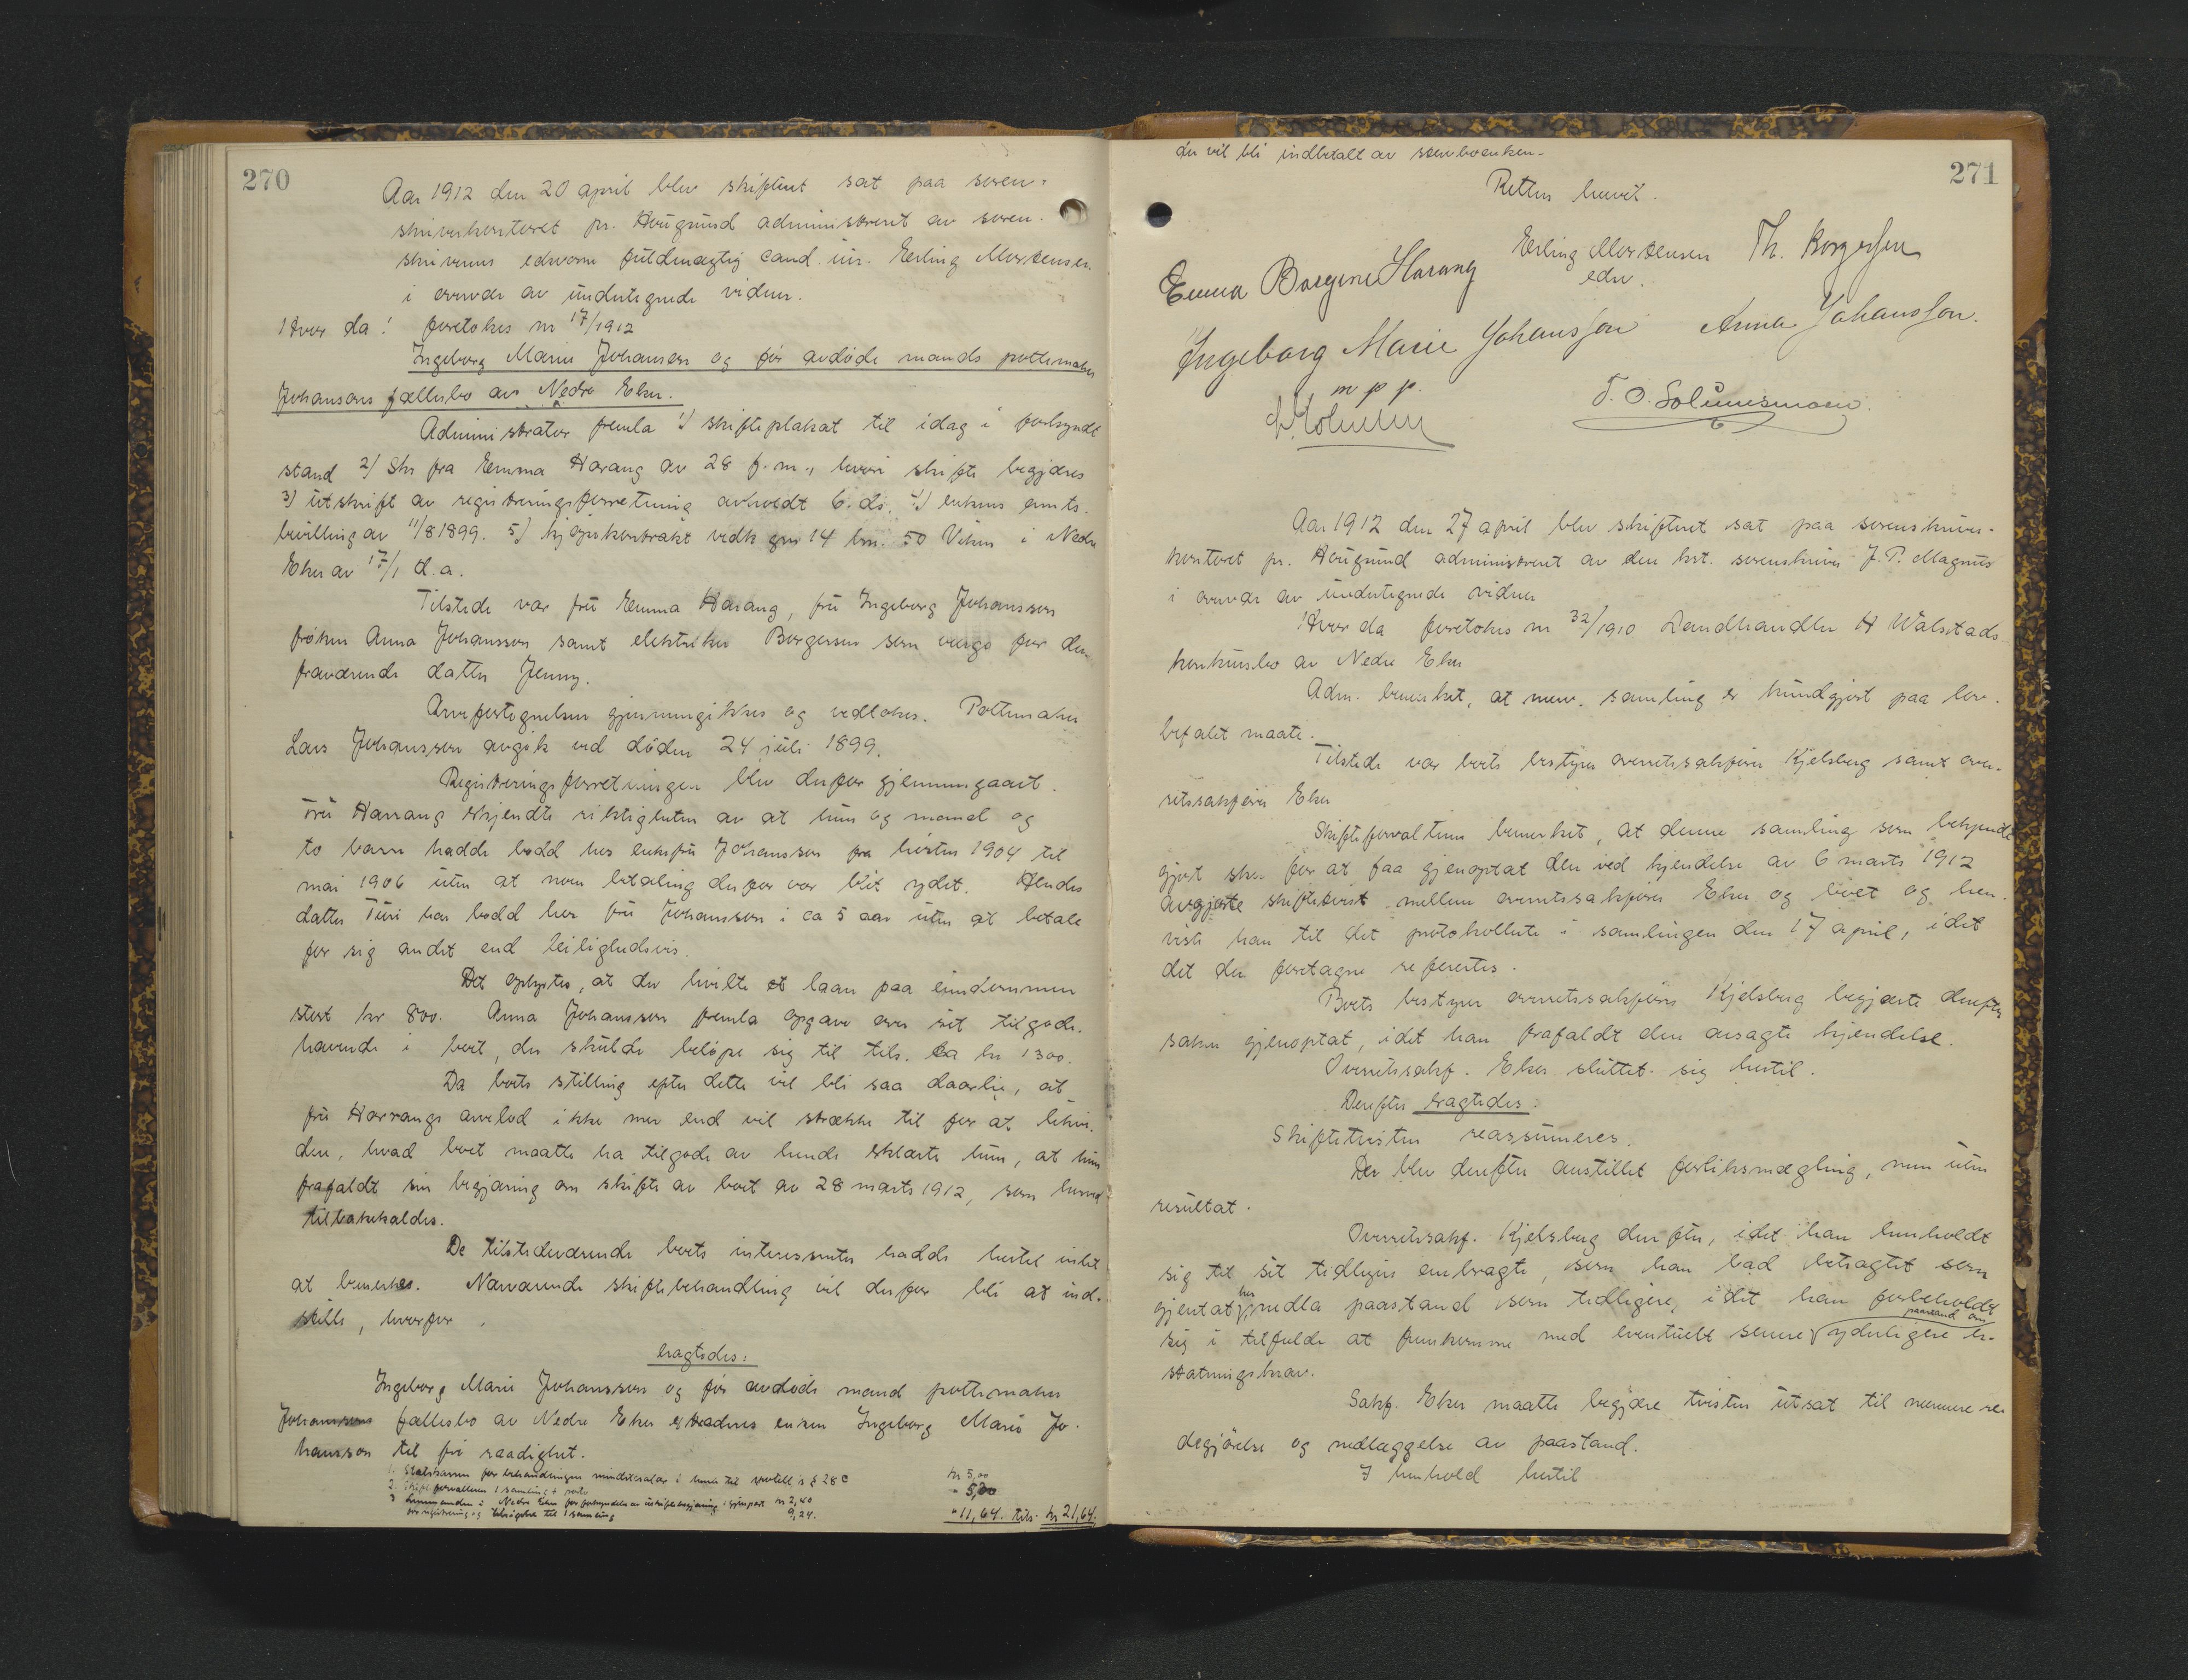 270
Aar 1912 den 20 april blev skifteret sat paa soren-
skriverkontoret pr. Hougsund administreret av soren-
skriverens edsvorne fuldmægtig cand. jur. Erling Mortensen
i overvær av undertegnede vidner.
Hvor da! foretokes nr 17/1912
Ingeborg Marie Johansson og før avdøde mands pottemaker
Johanssons fællesbo av Nedre Eker.
Administrator fremla 1) skifteplakat til idag i forkyndt
stand 2) Skr fra Emma Harang av 28 f.m., hvori skifte begjæres
3) utskrift av registreringsforretning avholdt 6. ds. 4) enkens amts-
bevilling av 11/8 1899. 5) kjøpekontrakt vedk gnr 14 bnr. 50 Viken i Nedre
Eker av 17/1 d.a.
Tilstede var fru Emma Harang, fru Ingeborg Johansson
frøken Anna Johansson samt elektriker Borgersen som verge for den
fraværende datter Jenny.
Arvefortegnelsen gjennemgikkes og vedtokes. Pottemaker
Lars Johansson avgik ved døden 24 juli 1899.
Registreringsforretningen blev derfor gjennemgaaet.
Fru Harrang erkjendte riktigheten av at hun og mand og
to barn hadde bodd hos enkefru Johansson fra høsten 1904 til
mai 1906 uten at noen betaling derfor var blit ydet. Hendes
datter Turi har bodd hos fru Johansson i ca 5 aar uten at betale
for sig andet end leilighedsvis.
Det oplystes, at der hvilte et laan paa eiendommen
stort kr 800. Anna Johansson fremla opgave over sit tilgode-
havende i boet, der skulde beløpe sig til tils. ca kr 1300.
Da boets stilling efter dette vil bli saa daarlig, at
fru Harrangs arvelod ikke mer end vil strække til for at likvi-
dere, hvad boet maatte ha tilgode av hende erklærte hun, at hun
frafaldt sin begjæring om skifte av boet av 28 marts 1912, som herved
tilbakekaldes.
De tilstedeværende boets interessenter hadde hertil intet
at bemerke. Nærværende skiftebehandling vil derfor bli at ind-
stille, hvorfor
eragtedes:
Ingeborg Marie Johansson og før avdøde mand pottemaker
Johanssons fællesbo av Nedre Eker extraderes enken Ingeborg Marie Jo-
hansson til fri raadighet.
1. Statskassen for behandlingen mindstesalær i henh til sportell. § 28 c kr 5,00
2. Skifteforvalteren 1 samling + porto - 5,00
3 Lensmanden i Nedre Eker for forkyndelse av kr 2,40
for registrering og tilsigelse til 1 samling 9,24. - 11,64. tils. kr 21,64.
271
der vil bli indbetalt av stervboenken-
Retten hævet.
Erling Mortensen Th. Borgersen
edsv.
Emma Borgine Harang
Ingeborg Marie Johansson Anna Johansson.
m p p.
T. O. Solumsmoen.
Aar 1912 den 27 april blev skifteret sat paa sorenskriver-
kontoret pr. Hougsund administreret av den kst. sorenskriver J. P. Magnus
i overvær av undertegnede vidner
Hvor da foretokes nr 32/1910 Landhandler H Walstads
konkursbo av Nedre Eker
Adm. bemerket, at nærv. samling er kundgjort paa lov-
befalet maate.
Tilstede var boets bestyrer overretssakfører Kjelsberg samt over-
retssakfører Eker
Skifteforvalteren bemerket, at denne samling som bekjendt-
gjort sker for at faa gjenoptat den ved kjendelse av 6 marts 1912
avgjorte skiftetvist mellem overretssakfører Eker og boet og hen-
viste han til det protokollerte i samlingen den 17 april, idet
det der foretagne refereertes.
Boets bestyrer overretssakfører Kjelsberg begjærte derefter
saken gjenoptat, idet han frafaldt den avsagte kjendelse.
Overretssakf. Eker sluttet sig hertil.
Derefter eragtedes:
Skiftetvisten reassumeres.
Der blev derefter anstillet forliksmægling, men uten
resultat.
Overretssakf. Kjelsberg derefter, idet han henholdt
sig til sit tidligere anbragte, som han bad betragtet som
gjentat her, nedla paastand som tidligere, idet han forbeholdt
sig i tilfælde at fremkomme med eventuelt senere paastand om yderligere er-
statningskrav.
Sakf. Eker maatte begjære tvisten utsat til nærmere re-
degjørelse og nedlæggelse av paastand.
I henhold hertil